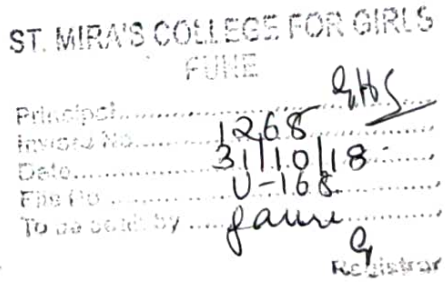 ST. MIRA'S COLLEGE FOR GIRLS
PUNE
Principal
Inward No. 1268
Date 31/10/18
File No U-168
To be dealt by Gauri
Registrar